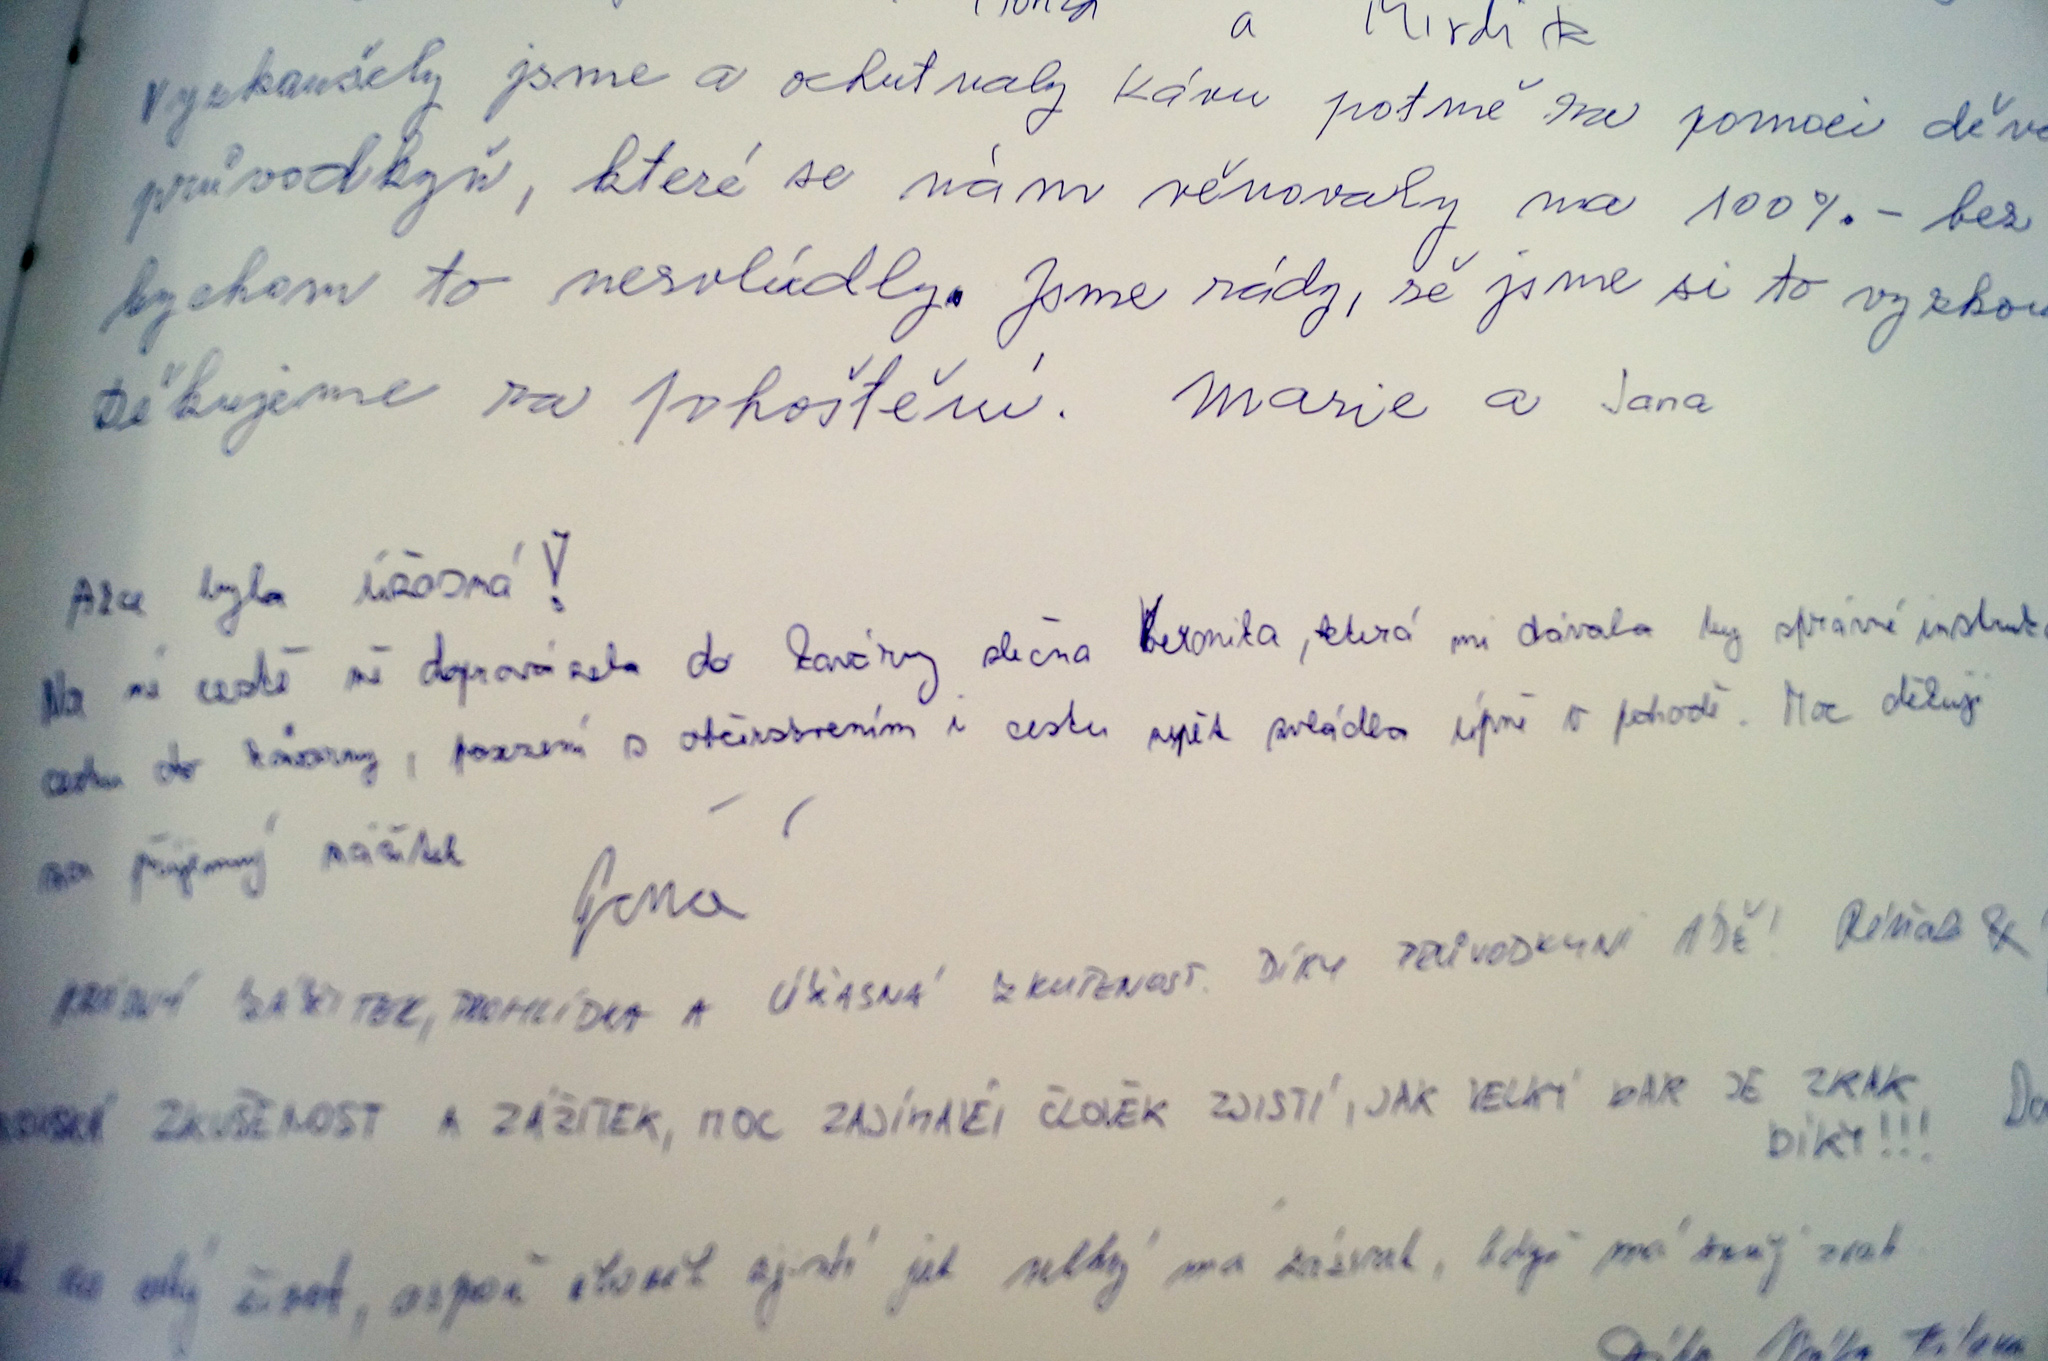 a Mirdik
Vyzkoušely jsme a ochutnaly kávu potmě za pomoci
průvodkyň, které se nám věnovaly na 100%. - bez
bychom to nezvládly. Jsme rády, že jsme si to
Děkujeme za pohoštění. Marie a Jana
Akce byla úžasná!
Na mé cestě mě doprovázela do kavárny slečna Veronika, která mi dávala tky správné
cestu do kavárny, posezení s občerstvením i cestu zpět zvládla úplně v pohodě. Moc děkuji
za příjemný zážitek
Jana
ZÁŽITEK, PROHLÍDKA A ÚŽASNÁ ZKUŠENOST. DÍKY PRŮVODKYNI ÁDĚ!
ZKUŠENOST A ZÁŽITEK, MOC ZAJÍMAVÉ, ČLOVĚK ZJISTÍ, JAK VELKÝ DAR JE ZRAK
DÍKY!!!
na celý život, aspoň člověk zjistí jak velký má zázrak, když má zdravý zrak